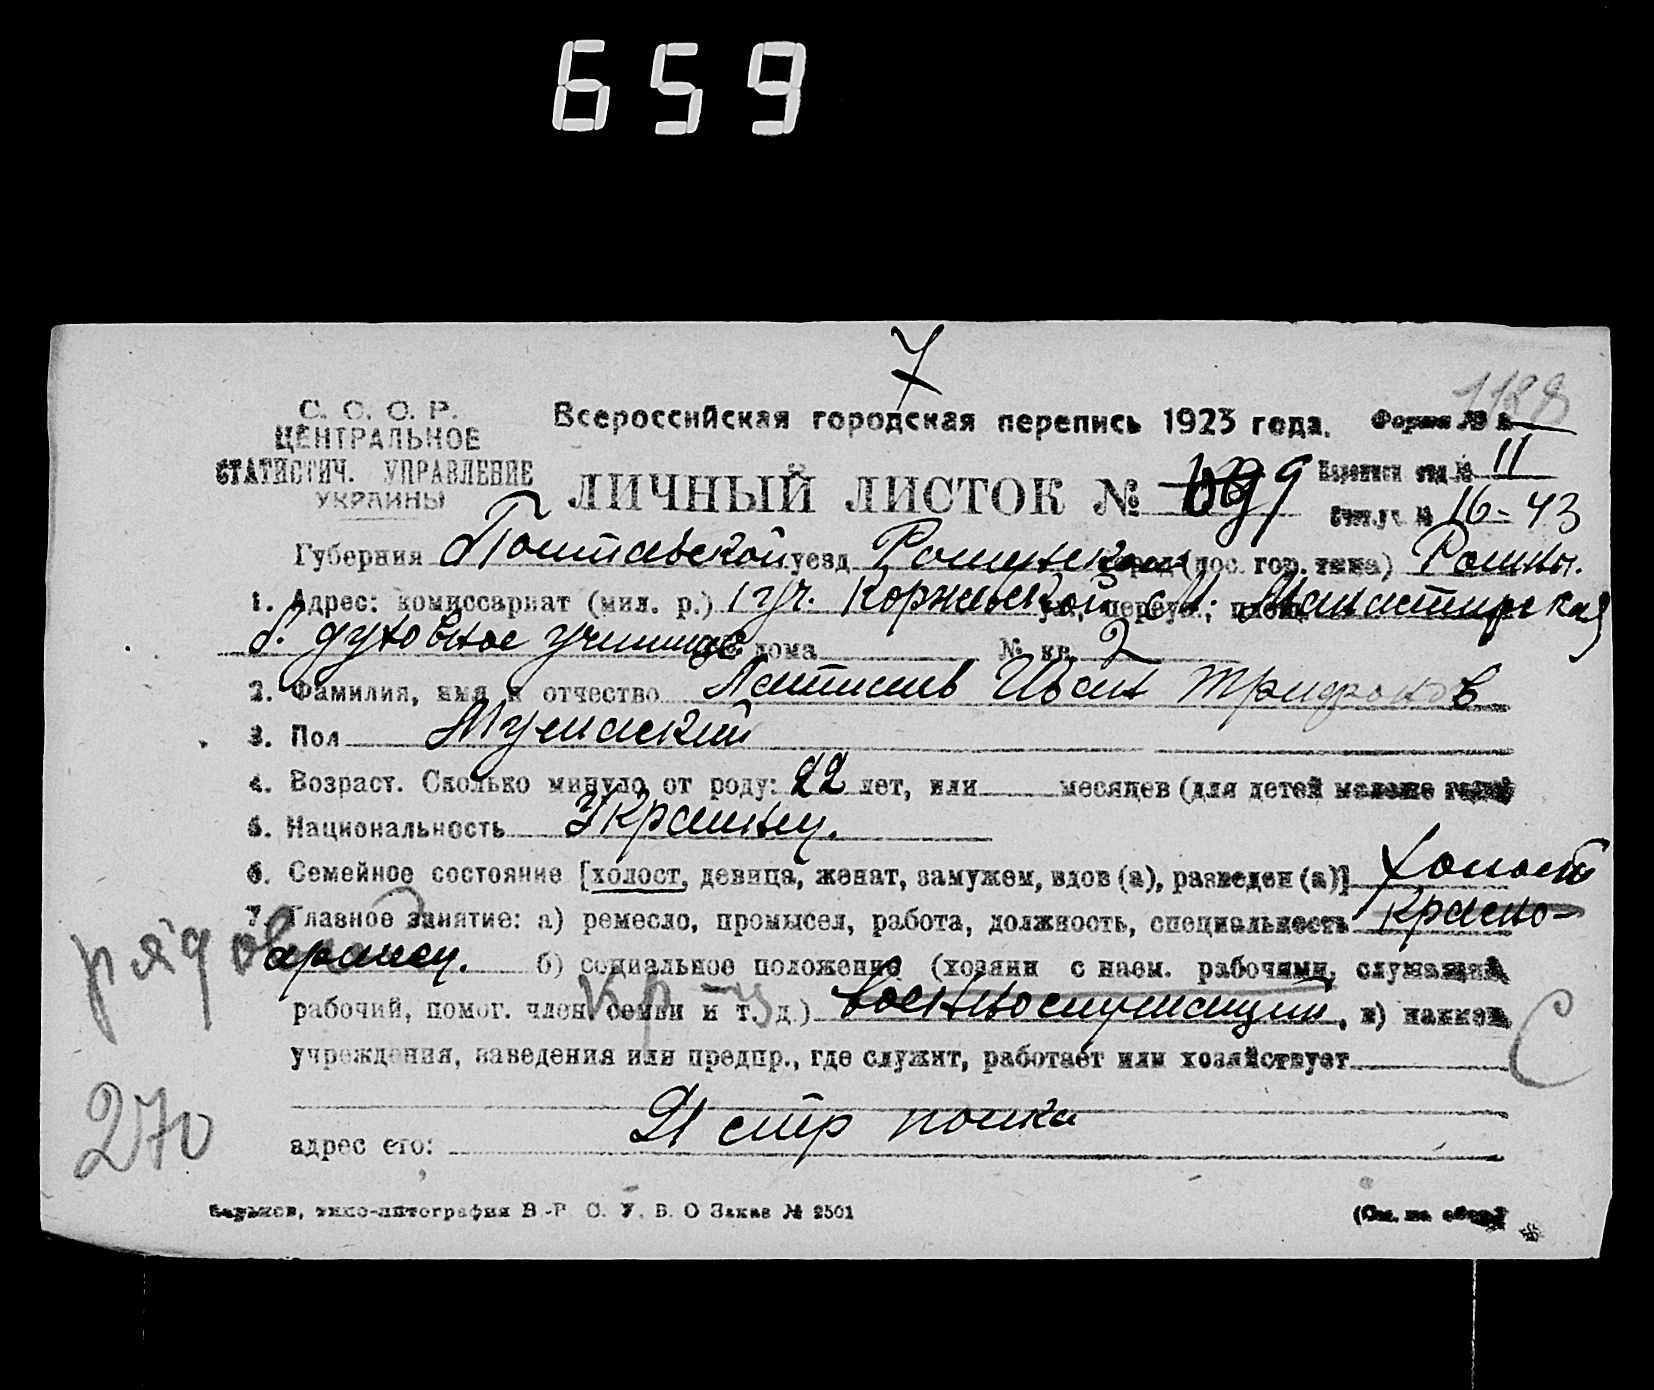 659
7
1188
С. С. С. Р.
ЦЕНТРАЛЬНОЕ
СТАТИСТИЧ. УПРАВЛЕНИЕ
УКРАИНЫ
Всероссийская городская перепись 1923 года. Форма №
ЛИЧНЫЙ ЛИСТОК № 9 отд. № 11
№ 16-43
Губерния Полтавской уезд Роменском (пос. гор. типа) Ромны.
1. Адрес: комиссариат (мил. р.) 1 уч. ул., переул., площ. Манастирская
б. духовное училище дома № кв. 2
2. Фамилия, имя и отчество Иван Трифонов
3. Пол Мужский
4. Возраст. Сколько минуло от роду: 22 лет, или месяцев (для детей моложе года)
5. Национальность Украинец.
6. Семейное состояние [холост, девица, женат, замужем, вдов (а), разведен (а)] холост
7. Главное занятие: а) ремесло, промысел, работа, должность, специальность Красно-
рядов
армеец. б) социальное положение (хозяин с наем. рабочими, служащий,
рабочий, помог. член семьи и т. д.) военнослужащий, в) наимен.
кр-ц
С
учреждения, заведения или предпр., где служит, работает или хозяйствует
270
адрес его: 21 стр полка
Харьков, типо-литография В.-Р. С. У. В. О Заказ № 2501 (См. на обор.)